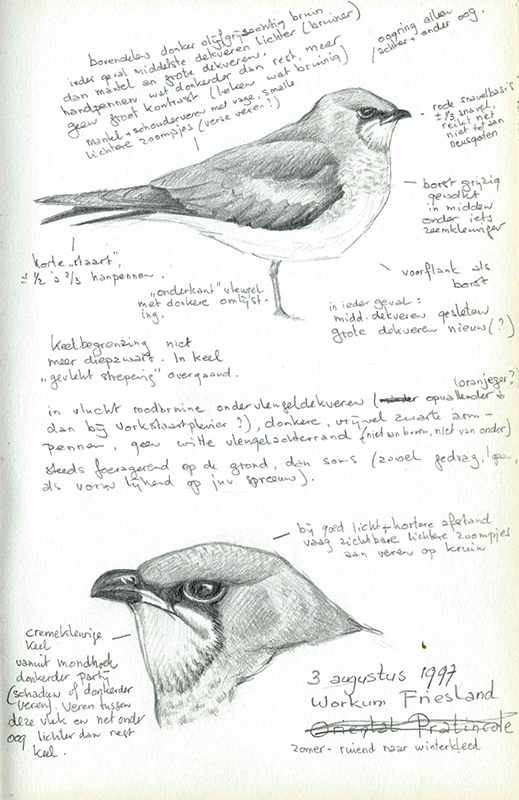 bovendelen donker olijfgrijsachtig bruin
ieder geval middelste dekveren lichter (bruiner)
dan mantel en grote dekveren.
handpennen wat donkerder dan rest, meer
geen groot kontrast (leken wat bruinig)
mantel + schouderveren met vage, smalle
lichtere zoompjes (verse veren?)
oogring alleen
achter + onder oog.
rode snavelbasis
± 1/3 snavel,
reikt net
niet tot aan
neusgaten
borst grijzig
gevlekt
in midden
onder iets
zeemkleuriger
voorflank als
borst
korte "staart",
± 1/2 à 2/3 hanpennen.
"onderkant" vleugel
met donkere omlijst-
ing.
in ieder geval:
midd. dekveren gesleten
grote dekveren nieuw (?)
Keelbegrenzing niet
meer diepzwart. In keel
"gevlekt streperig" overgaand.
oranjeger?
in vlucht roodbruine ondervleugeldekveren (opvallender
dan bij Vorkstaartplevier?), donkere, vrijwel zwarte arm-
pennen, geen witte vleugelachterrand (niet van boven, niet van onder)
steeds foeragerend op de grond, dan soms (zowel gedrag,
als vorm lijkend op juv spreeuw).
bij goed licht + kortere afstand
vaag zichtbare lichtere zoompjes
aan veren op kruin
cremekleurige
keel
vanuit mondhoek
donkerder partij
(schaduw of donkerder
veren). Veren tussen
deze vlek en net onder
oog lichter dan rest
keel.
3 augustus 1997
Workum Friesland
Oriental Pratincole
zomer- ruiend naar winterkleed